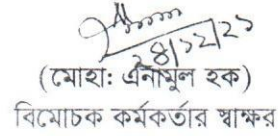 ২৪/১২/২১
(মোহা: এনামুল হক)
বিমোচক কর্মকর্তার স্বাক্ষর